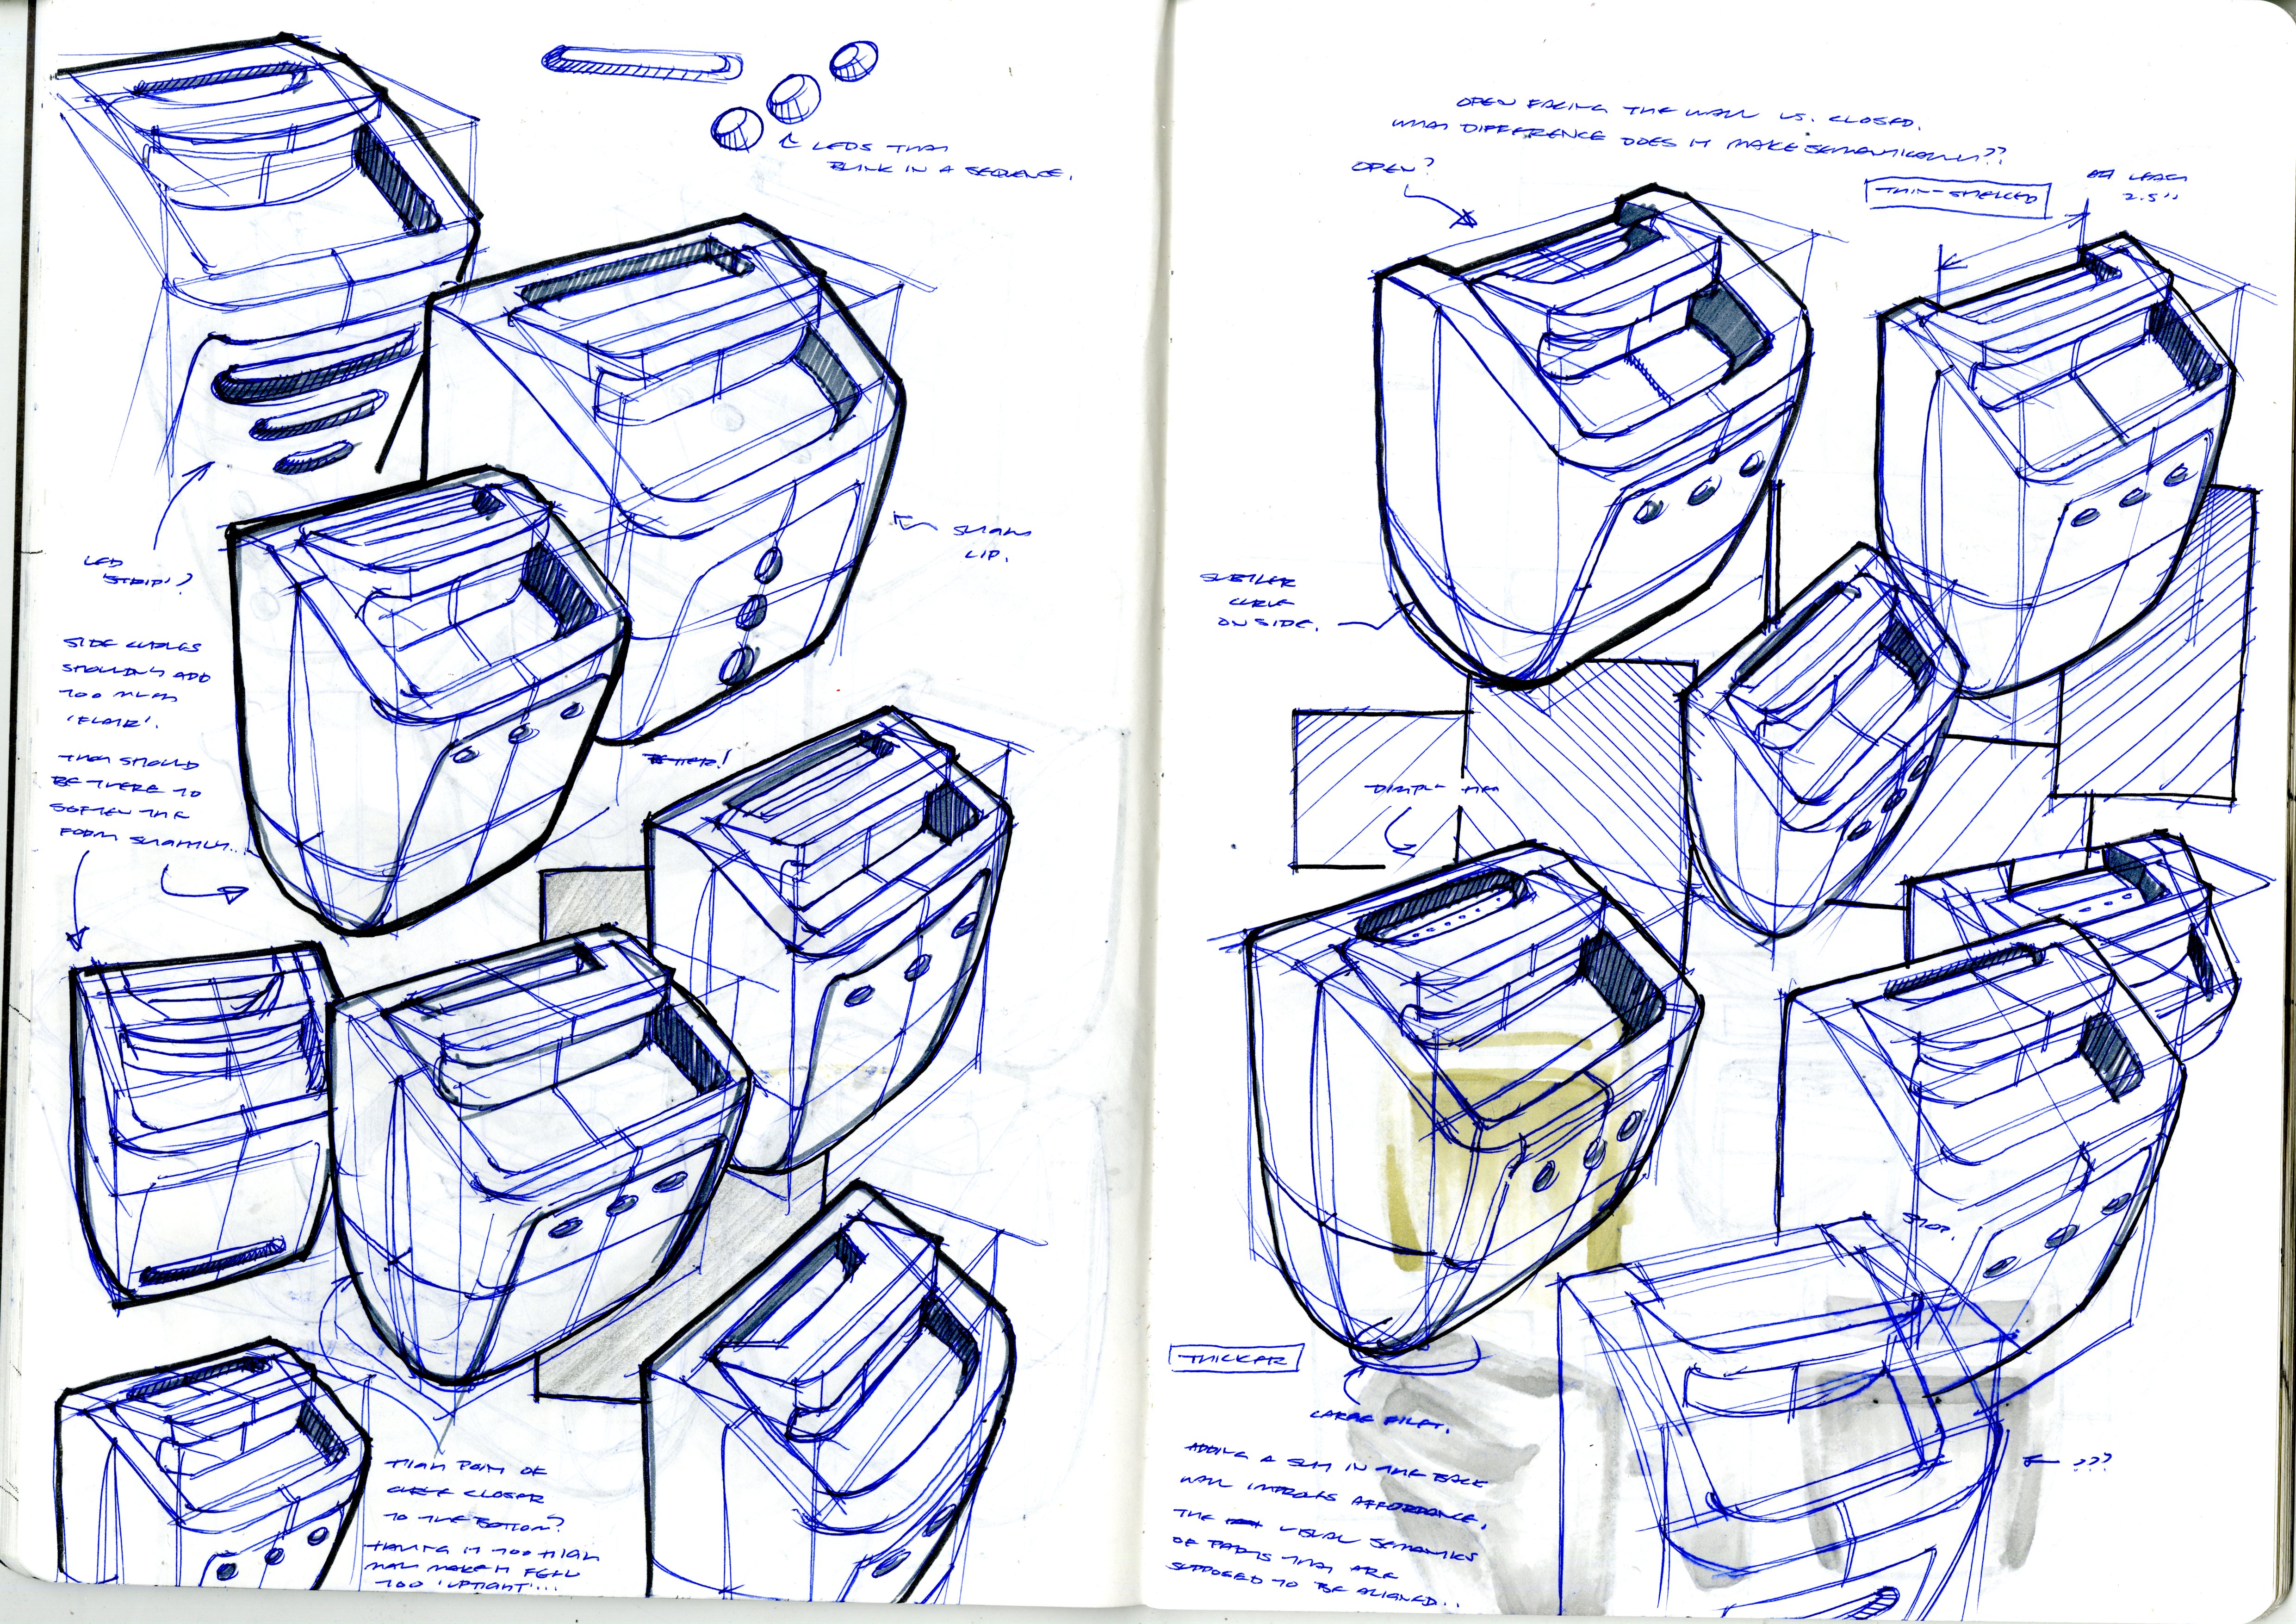 LEDS THAT
BLINK IN A SEQUENCE.
SHARP
LIP.
LED
STRIP?
SIDE CURVES
SHOULDN'T ADD
TOO MUCH
'FLAIR'.
THEY SHOULD
BE THERE TO
SOFTEN THE
FORM SLIGHTLY...
BETTER!
HIGH POINT OF
CURVE CLOSER
TO THE BOTTOM?
HAVING IT TOO HIGH
MAY MAKE IT FEEL
TOO 'UPTIGHT'...
OPEN FACING THE WALL VS. CLOSED.
WHAT DIFFERENCE DOES IT MAKE SEMANTICALLY??
OPEN?
THIN-SHELLED
AT LEAST
2.5"
SUBTLER
CURVE
ON SIDE.
STOP.
THICKER
LARGE FILET.
ADDING A SLIT IN THE BACK
WALL IMPROVES AFFORDANCE.
THE VISUAL SEMANTICS
OF PARTS THAT ARE
SUPPOSED TO BE ALIGNED..
???